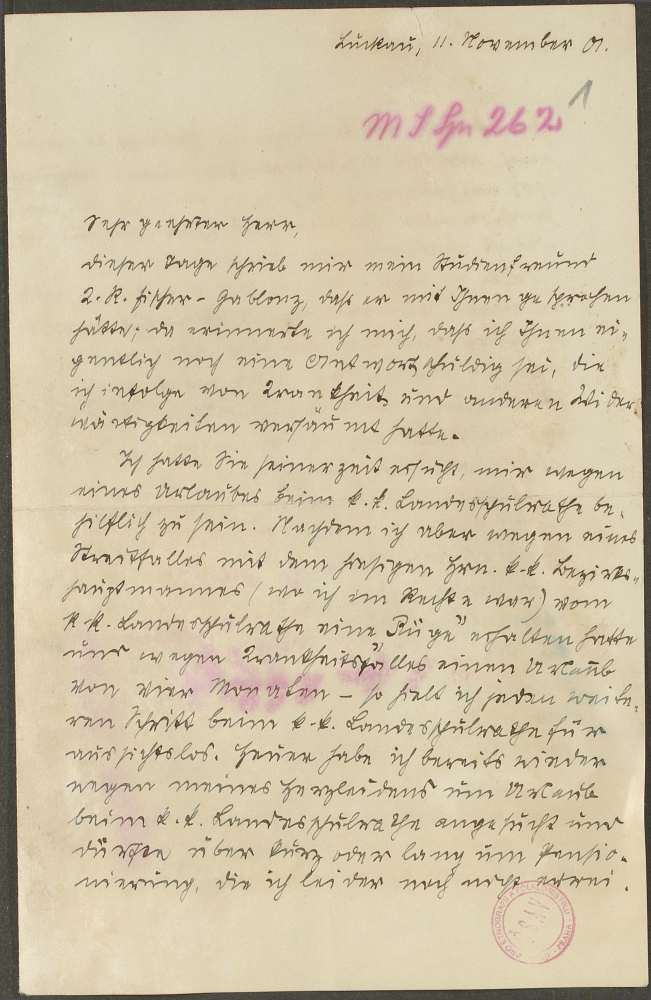 Luckau, 11. November 01.
1
Sehr geehrter Herr,
dieser Tage schrieb mir mein Studienfreund
J. K. Fischer - Gablonz, daß er mit Ihnen gesprochen
hätte; da erinnerte ich mich, daß ich Ihnen ei-
gentlich noch eine Antwort schuldig sei, die
ich infolge von Krankheit und anderen Wider
wärtigkeiten versäumt hatte.
Ich hatte Sie seinerzeit ersucht, mir wegen
eines Urlaubes beim k. k. Landesschulrathe be-
hilflich zu sein. Nachdem ich aber wegen eines
Streitfalles mit dem hiesigen Hrn. k. k. Bezirks-
hauptmannes (wo ich im Rechte war) vom
k. k. Landesschulrathe eine „Rüge“ erhalten hatte
und wegen Krankheitsfalles einen Urlaub
von vier Monaten – so hielt ich jeden weite-
ren Schritt beim k. k. Landesschulrathe für
aussichtslos. Heuer habe ich bereits wieder
wegen meines Herzleidens um Urlaub
beim k. k. Landesschulrathe angesucht und
dürfte über kurz oder lang um Pensio-
nierung, die ich leider noch nicht errei.